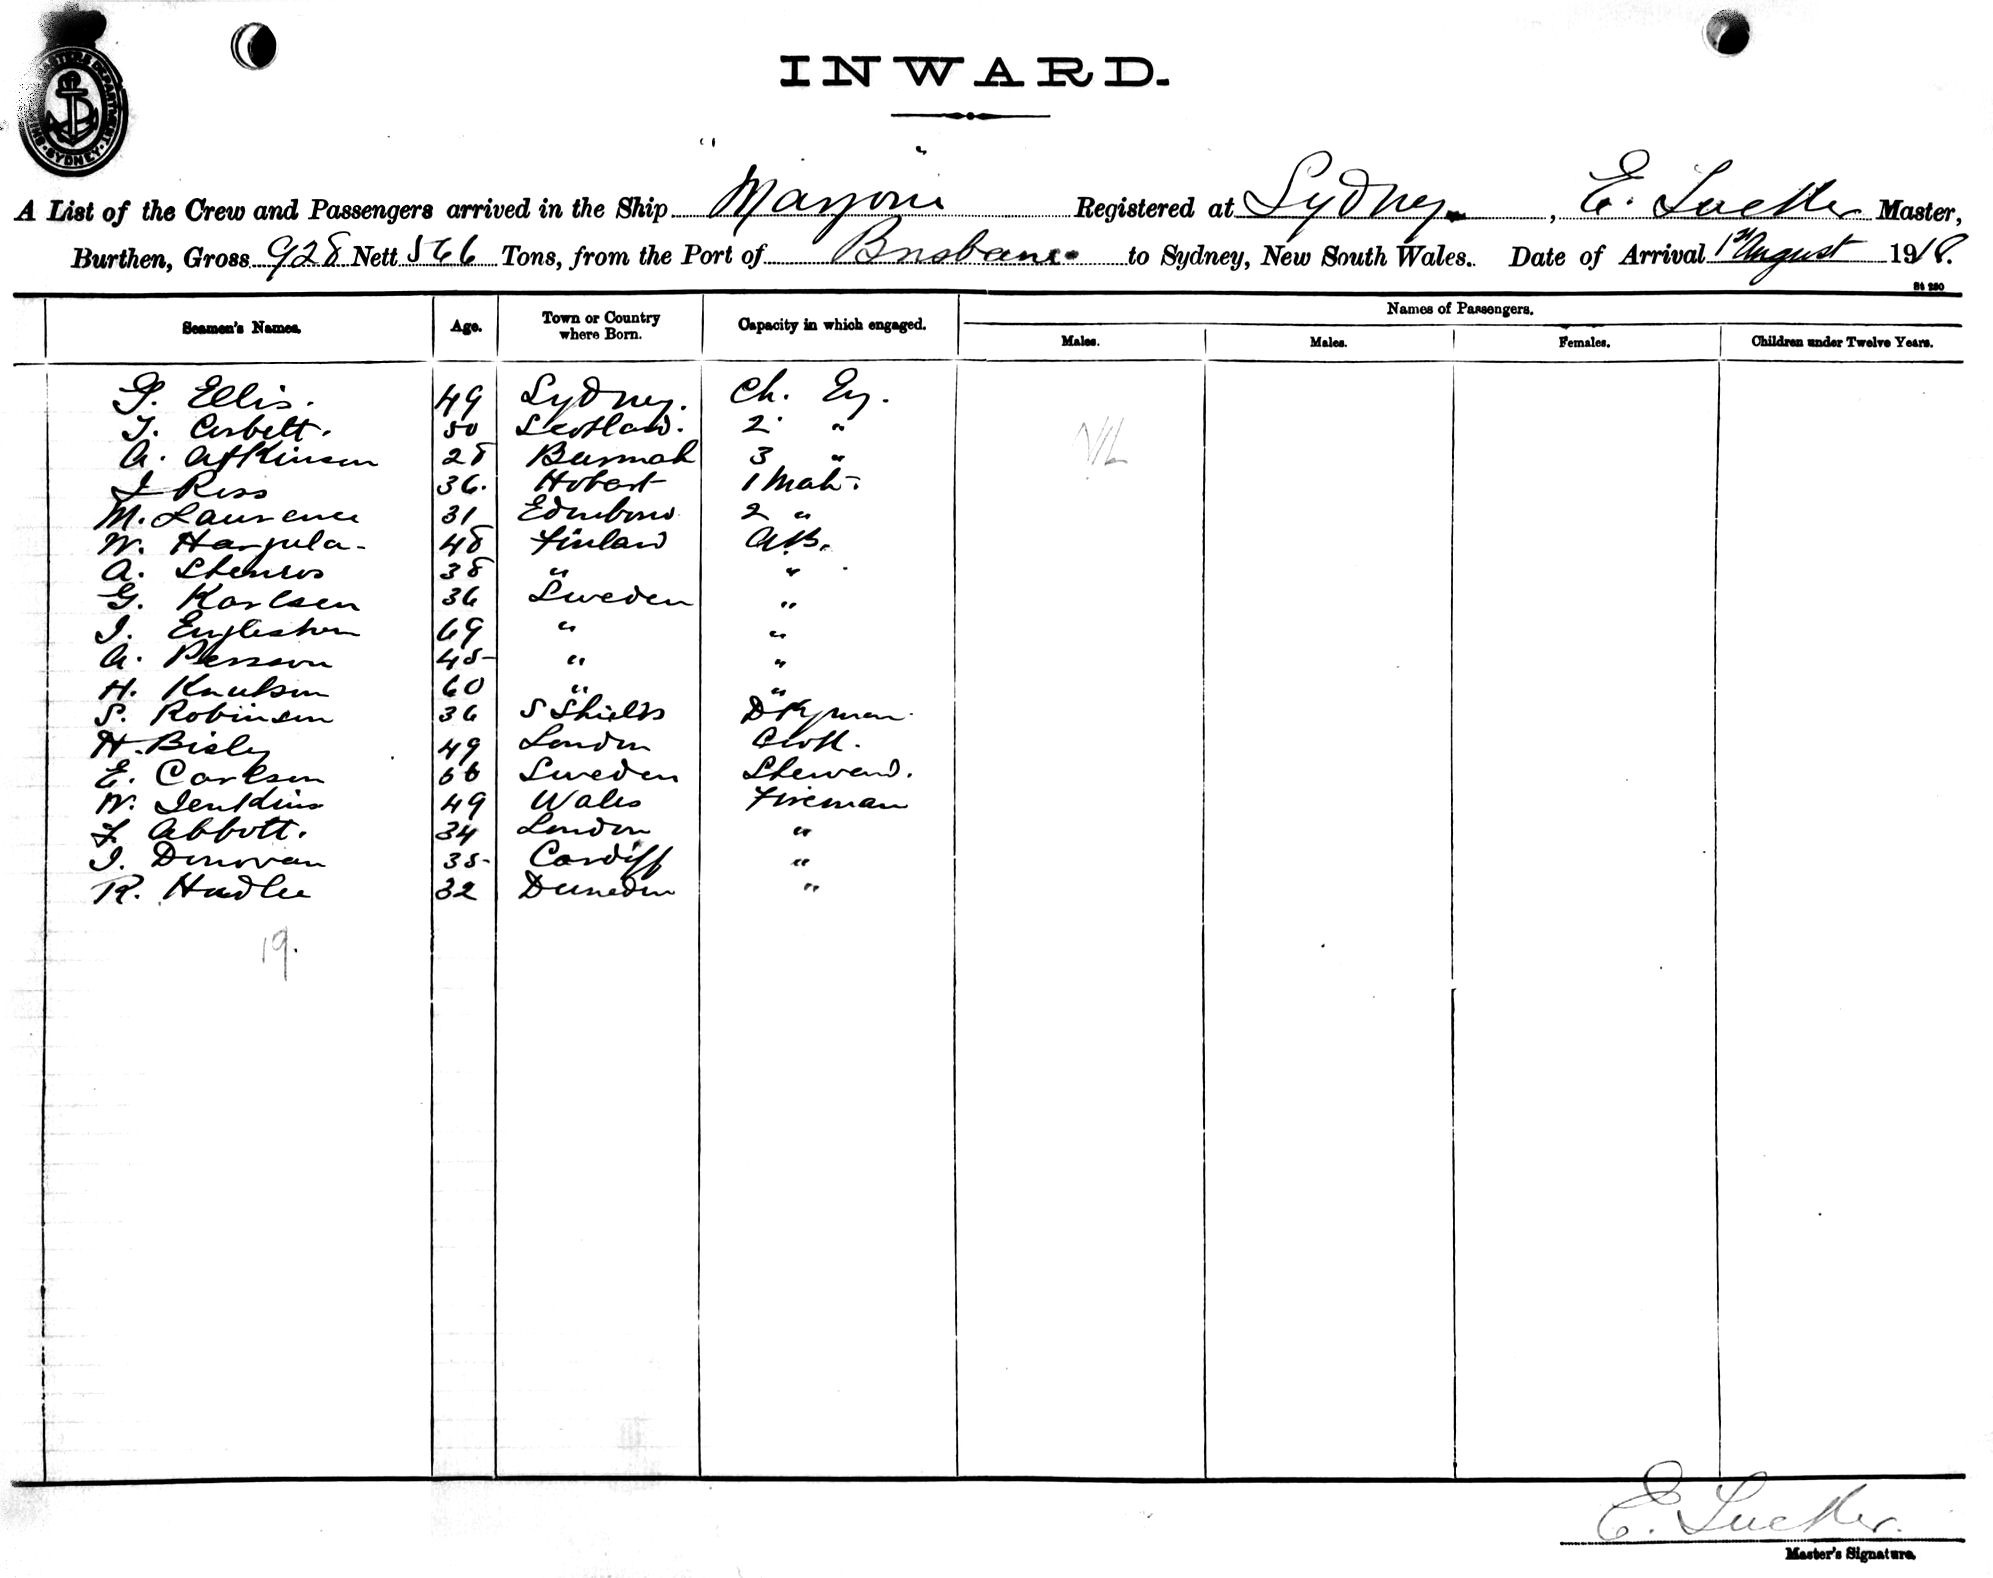 SHIPPING MASTERS DEPARTMENT · SYDNEY ·
INWARD.
A List of the Crew and Passengers arrived in the Ship "Marjorie" Registered at Sydney, E. Tucker Master,
Burthen, Gross 928 Nett 566 Tons, from the Port of Brisbane to Sydney, New South Wales. Date of Arrival 1st August 1918.
St 250
Seamen's Names. Age. Town or Country where Born. Capacity in which engaged. Names of Passengers.
Males. Males. Females. Children under Twelve Years.
P. Ellis. 49 Sydney. Ch. Eg.
T. Corbett. 50 Scotland. 2 "
A. Atkinson 28 Burmah 3 "
J Ross 36. Hobart 1 Mate.
NIL
M. Laurence 31 2 "
W. Harjula 48 Finland A.B.
A. Stenros 38 " "
G. Karlsen 36 Sweden "
J. 69 " "
A. Persson 45 " "
H. Knutson 60 " "
S. Robinson 36 S Shields Dkyman.
H. Bisley 49 London Cook.
E. Carlson 66 Sweden Steward.
W. Jenkins 49 Wales Fireman
F Abbott. 34 London "
J. Donovan 35 Cardiff "
R. Hadlee 32 Dunedin "
19.
E. Tucker.
Master's Signature.